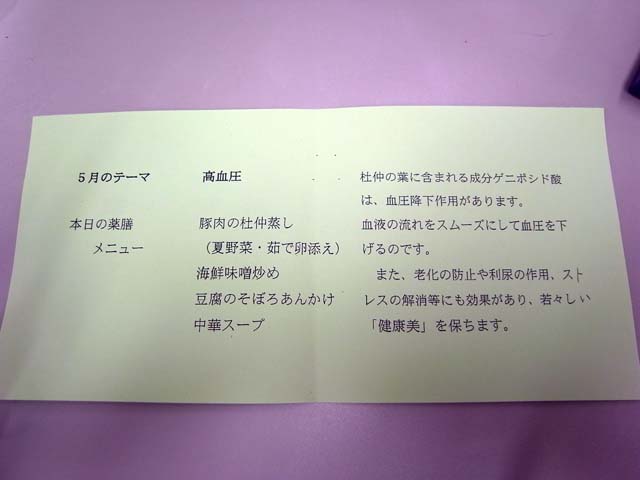 5月のテーマ　高血圧
本日の薬膳　豚肉の杜仲蒸し
メニュー　（夏野菜・茹で卵添え）
海鮮味噌炒め
豆腐のそぼろあんかけ
中華スープ
杜仲の葉に含まれる成分ゲニポシド酸
は、血圧降下作用があります。
血液の流れをスムーズにして血圧を下
げるのです。
また、老化の防止や利尿の作用、スト
レスの解消等にも効果があり、若々しい
「健康美」を保ちます。